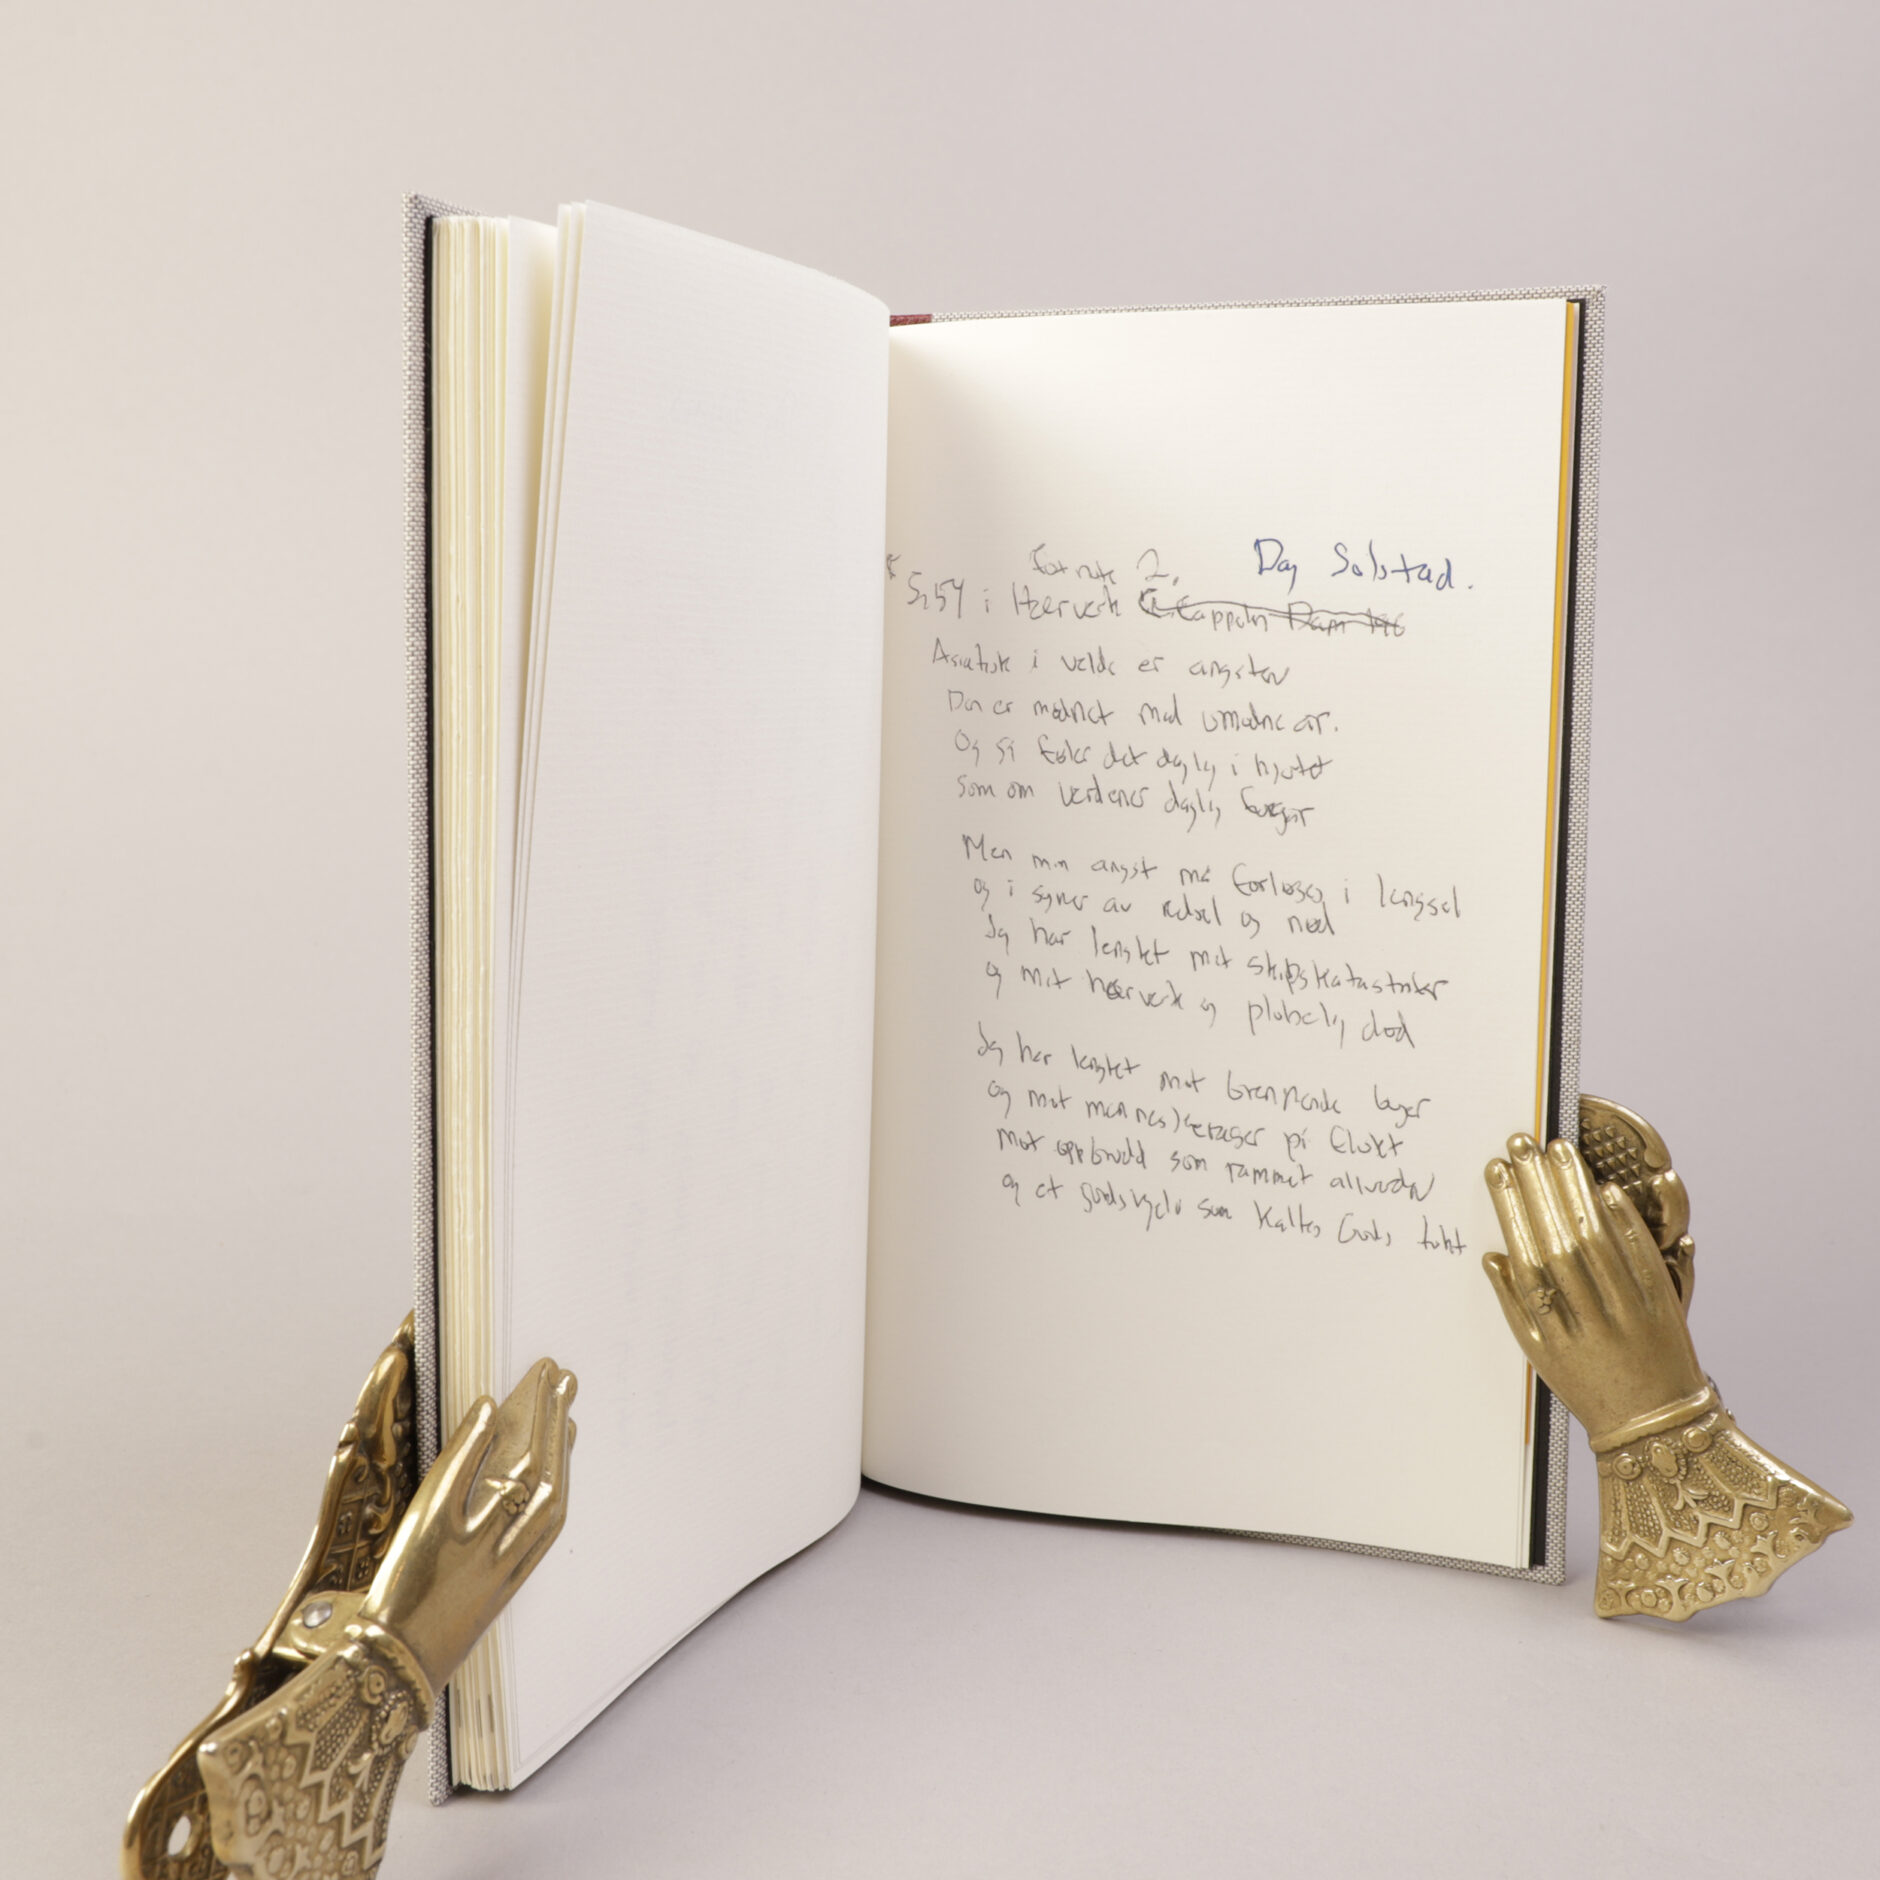 Fotnote 2. Dag Solstad.
* S, 154 i Hærverk J.W. Cappelen Damm 196
Asiatisk i velde er angsten
Den er modnet med umodne år.
Og gi føler det daglig i hjertet
som om verdener daglig forgår
Men min angst må forløses i lengsel
og i syner av redsel og nød
Jeg har lengtet mot skipskatastrofer
og mot hærverk og plutselig død
Jeg har lengtet mot brennende byer
og mot menneskeraser på flukt
mot oppbrudd som rammet allverden
og et jordskjelv som kaltes Guds tukt